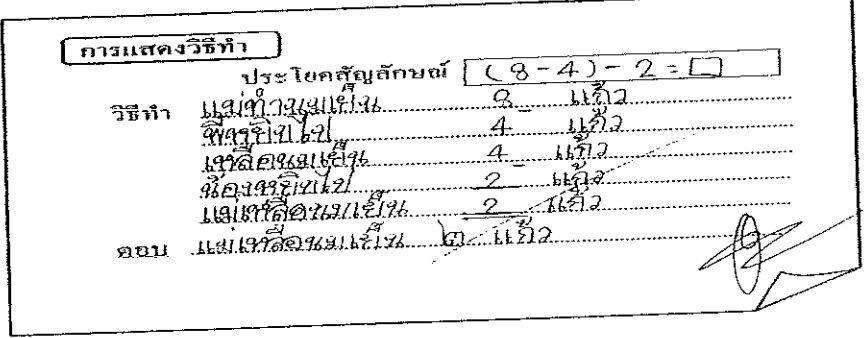 การแสดงวิธีทำ
ประโยคสัญลักษณ์ (8-4)-2=□
วิธีทำ แม่ทำนมเย็น 8 แก้ว
พี่หยิบไป 4 แก้ว
เหลือนมเย็น 4 แก้ว
น้องหยิบไป 2 แก้ว
แม่เหลือนมเย็น 2 แก้ว
ตอบ แม่เหลือนมเย็น ๒ แก้ว